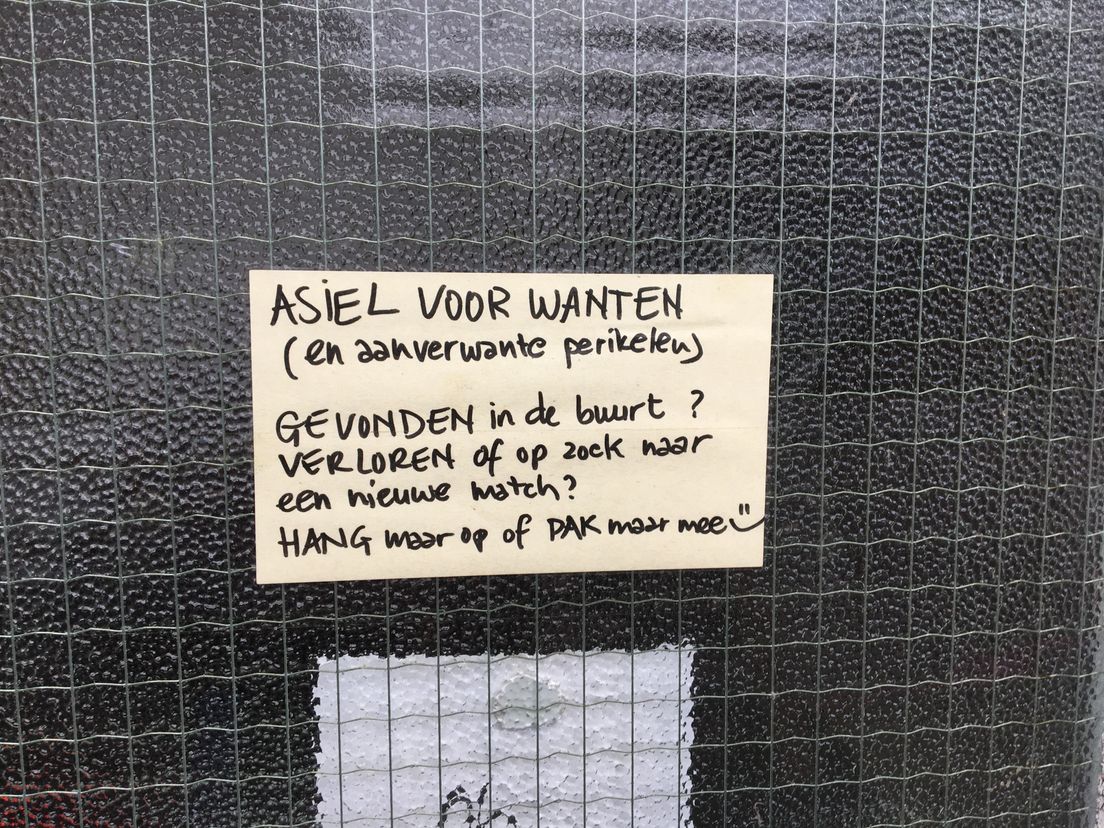 ASIEL VOOR WANTEN
(en aanverwante perikelen)
GEVONDEN in de buurt ?
VERLOREN of op zoek naar
een nieuwe match?
HANG maar op of PAK maar mee